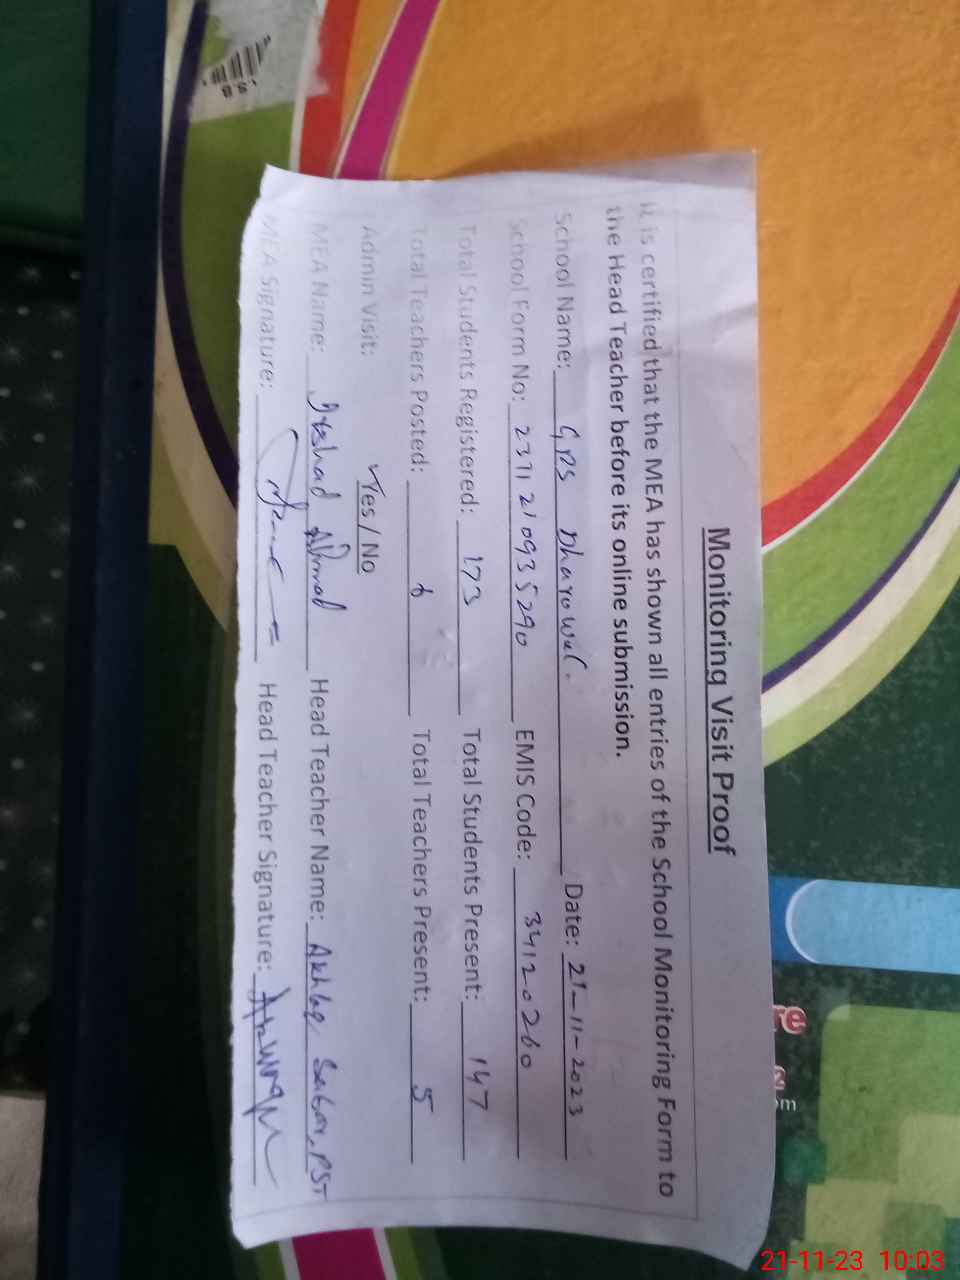 Monitoring Visit Proof
It is certified that the MEA has shown all entries of the School Monitoring Form to
the Head Teacher before its online submission.
School Name: GPS Dharowal. Date: 21-11-2023
School Form No: 2311210935290 EMIS Code: 34120260
Total Students Registered: 173 Total Students Present: 147
Total Teachers Posted: 6 Total Teachers Present: 5
Admin Visit: Yes / No
MEA Name: Irshad Ahmad Head Teacher Name: Akhlaq Sabar, PST
MEA Signature: Head Teacher Signature:
V.S.B
re
2
om
21-11-23 10:03